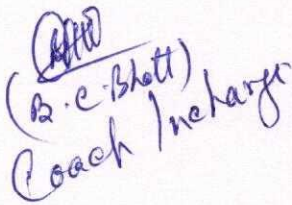 (B.C.Bhatt)
Coach Incharge